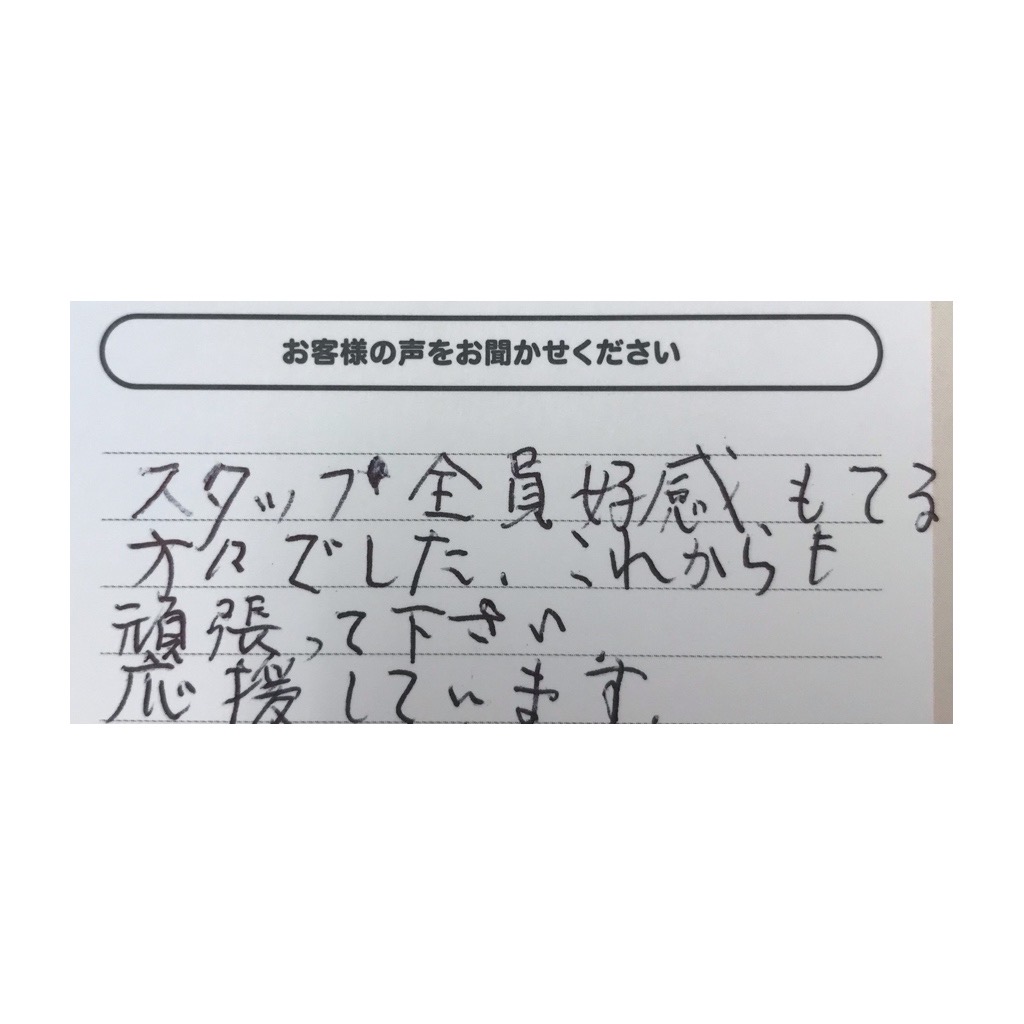 お客様の声をお聞かせください
スタッフ全員好感もてる
方々でした、これからも
頑張って下さい
応援しています。